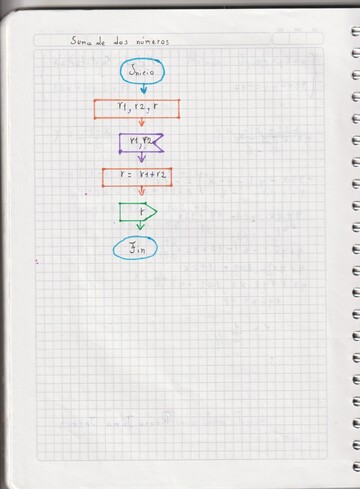 Suma de dos números
Inicio
r1, r2, r
r1, r2
r = r1+r2
r
Fin